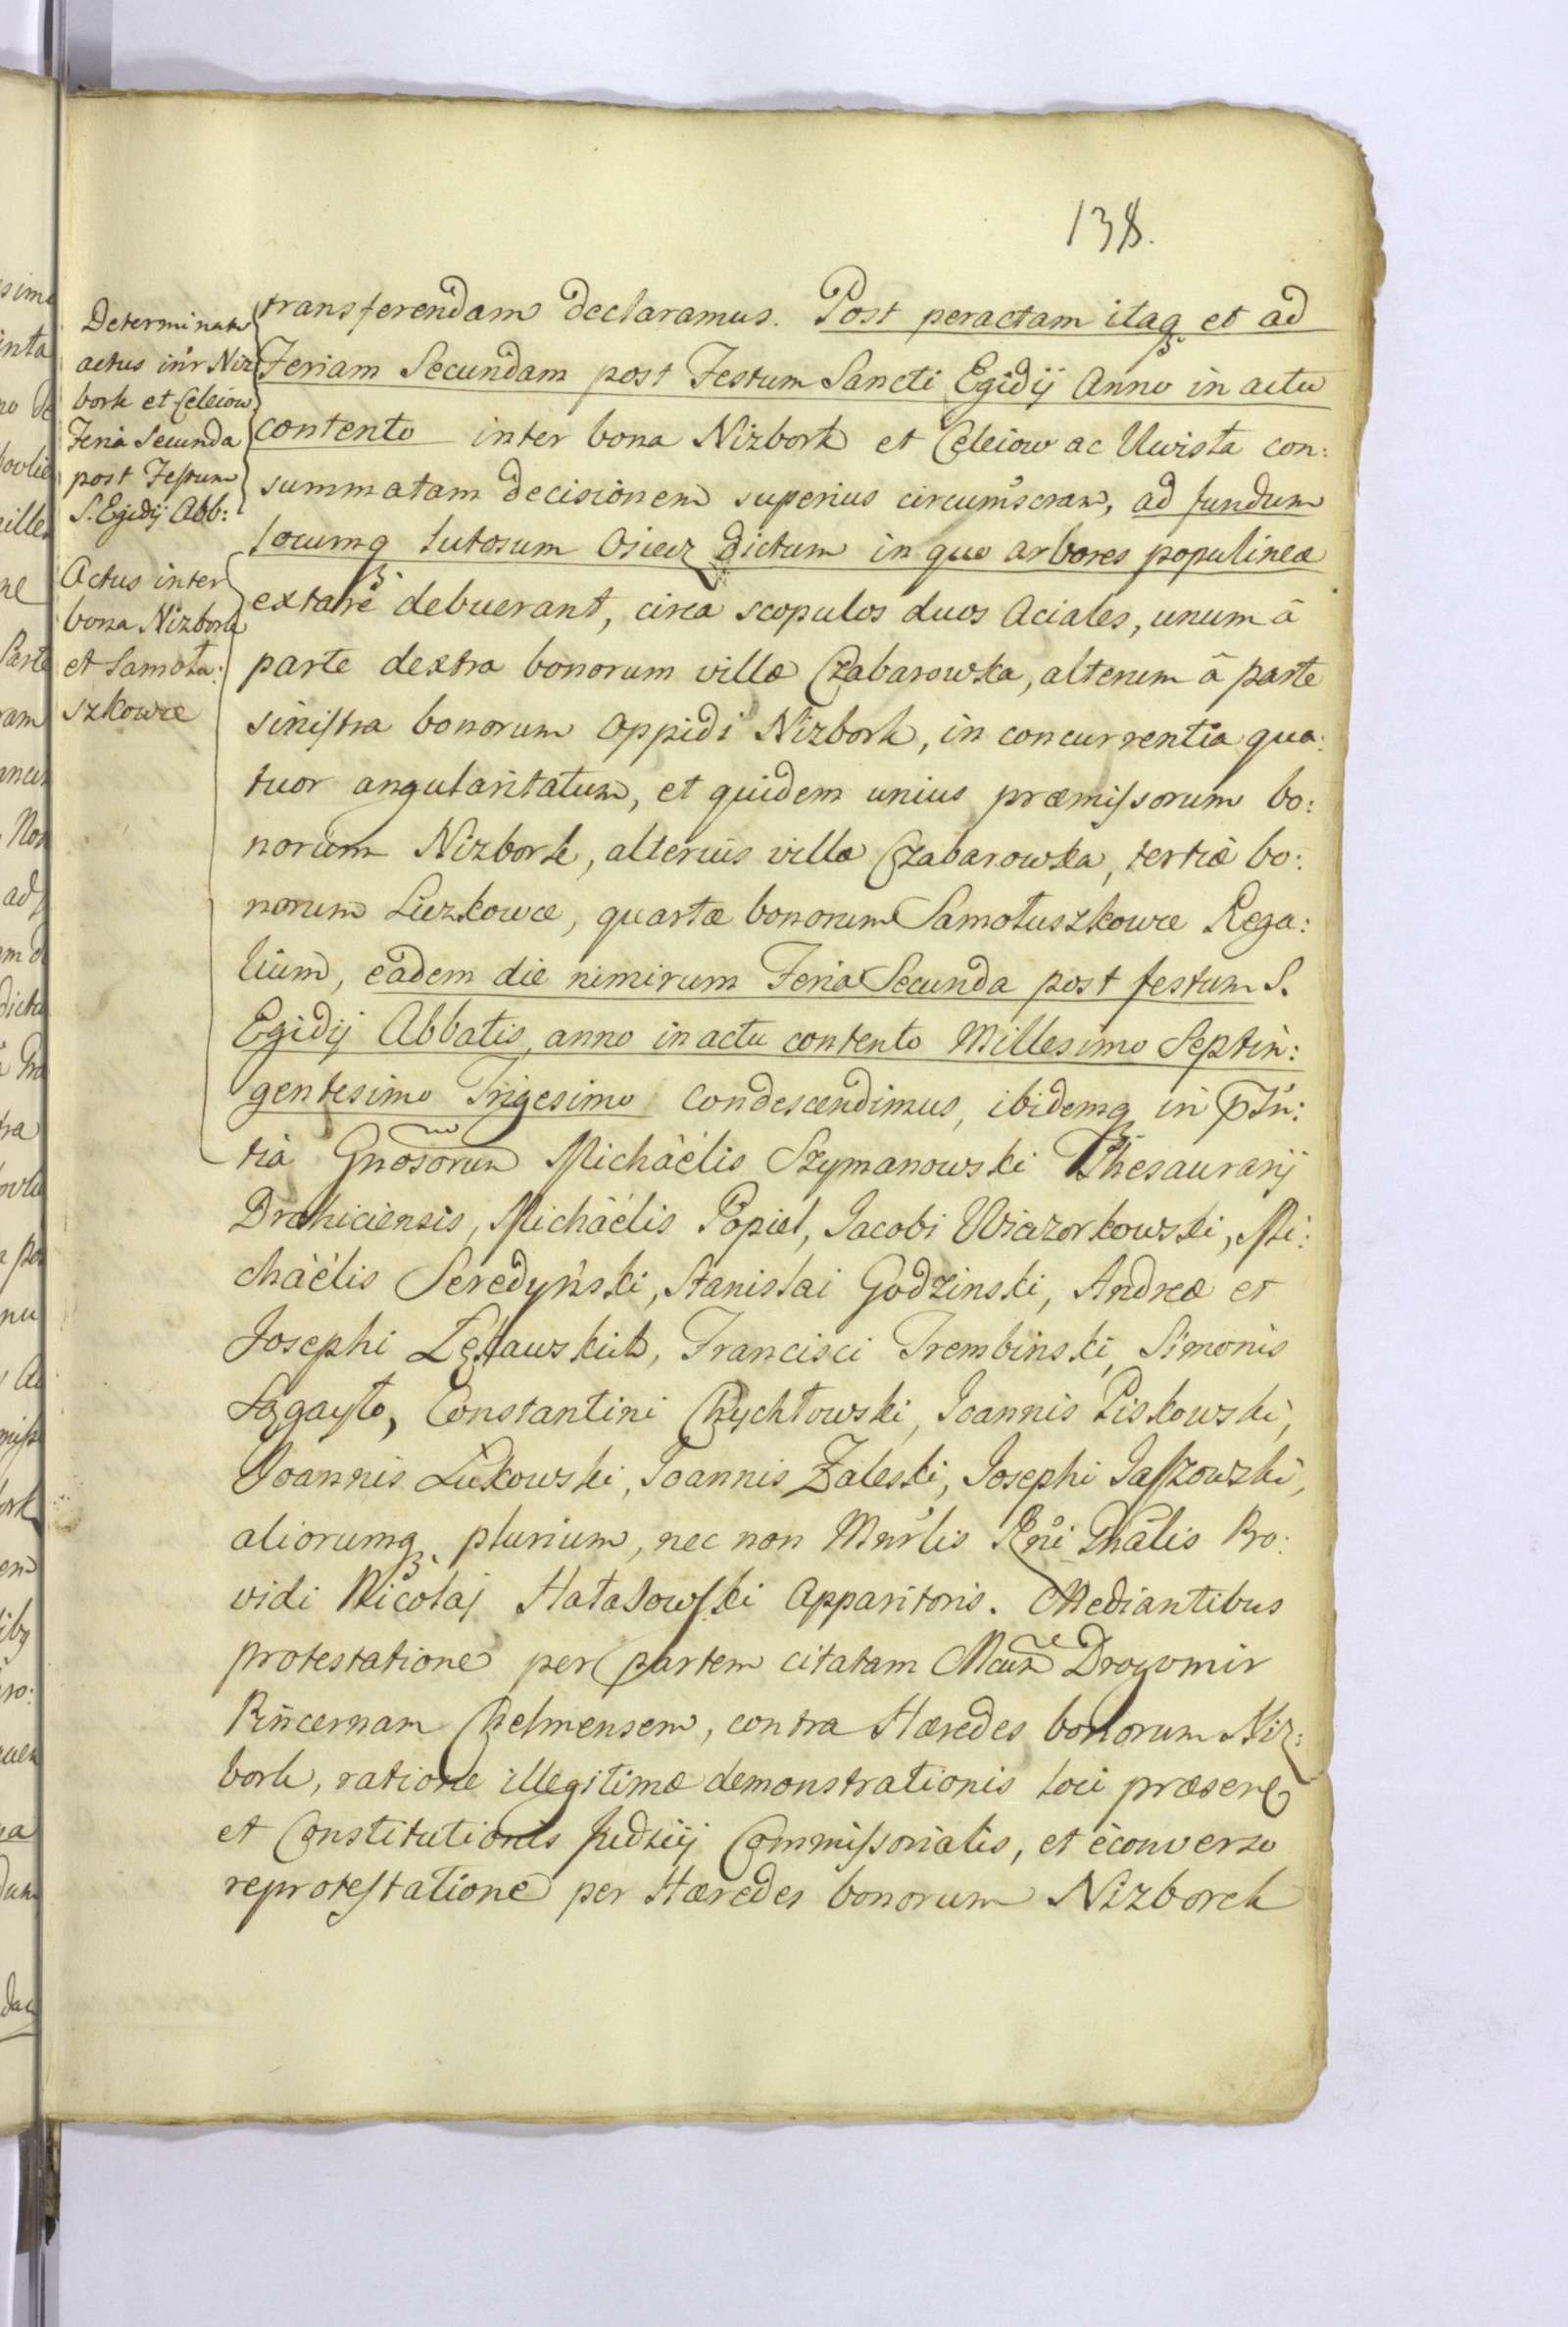 138.
Determinatio
actus int'r Niz
bork et Celeiow
Feria Secunda
post Festum
S. Egidij Abb:
Actus inter
bona Nizbork
et Samołu:
szkowce
transferendam declaramus. Post peractam itaq3 et ad
Feriam Secundam post Festum Sancti Egidij Anno in actu
contento inter bona Nizbork et Celeiow ac Uwisła con:
summatam decisionem superius circumscram, ad fundum
locumq3 lutosum Osiecz dictum in quo arbores populineæ
extare debuerant, circa scopulos duos Aciales, unum â
parte dextra bonorum villæ Czabarowka, alterum â parte
sinistra bonorum Oppidi Nizbork, in concurrentia qua:
tuor angularitatum, et quidem unius præmissorum bo:
norum Nizbork, alterius villæ Czabarowka, tertiæ bo:
norum Liczkowce, quartæ bonorum Samołuszkowce Rega:
lium, eadem die nimirum Feria Secunda post festum S.
Egidij Abbatis, anno in actu contento Millesimo Septin:
gentesimo Trigesimo condescendimus, ibidemq3 in pŕń:
tia Gnosorum Michaëlis Szymanowski Thesaurarij
Drohiciensis, Michaëlis Popiel, Jacobi Wiazorkowski, Mi:
chaëlis Seredyński, Stanislai Godzinski, Andreæ et
Josephi Zeławskich, Francisci Trembinski, Simonis
Łozgayło, Constantini Chychłowski, Joannis Piskowski,
Joannis Lukowski, Joannis Zaleski, Josephi Jaszowski,
aliorumq3 plurium, nec non Mnrlis Rni Gnalis Pro:
vidi Nicolaj Hałasowski Apparitoris. Mediantibus
protestatione per partem citatam Mcum Drogomir
Pincernam Chelmensem, contra Hæredes bonorum Niz:
bork, ratione illegitimæ demonstrationis loci præsens
et Constitutionis Judicij Commissorialis, et èconverso
reprotestatione per Hæredes bonorum Nizborek